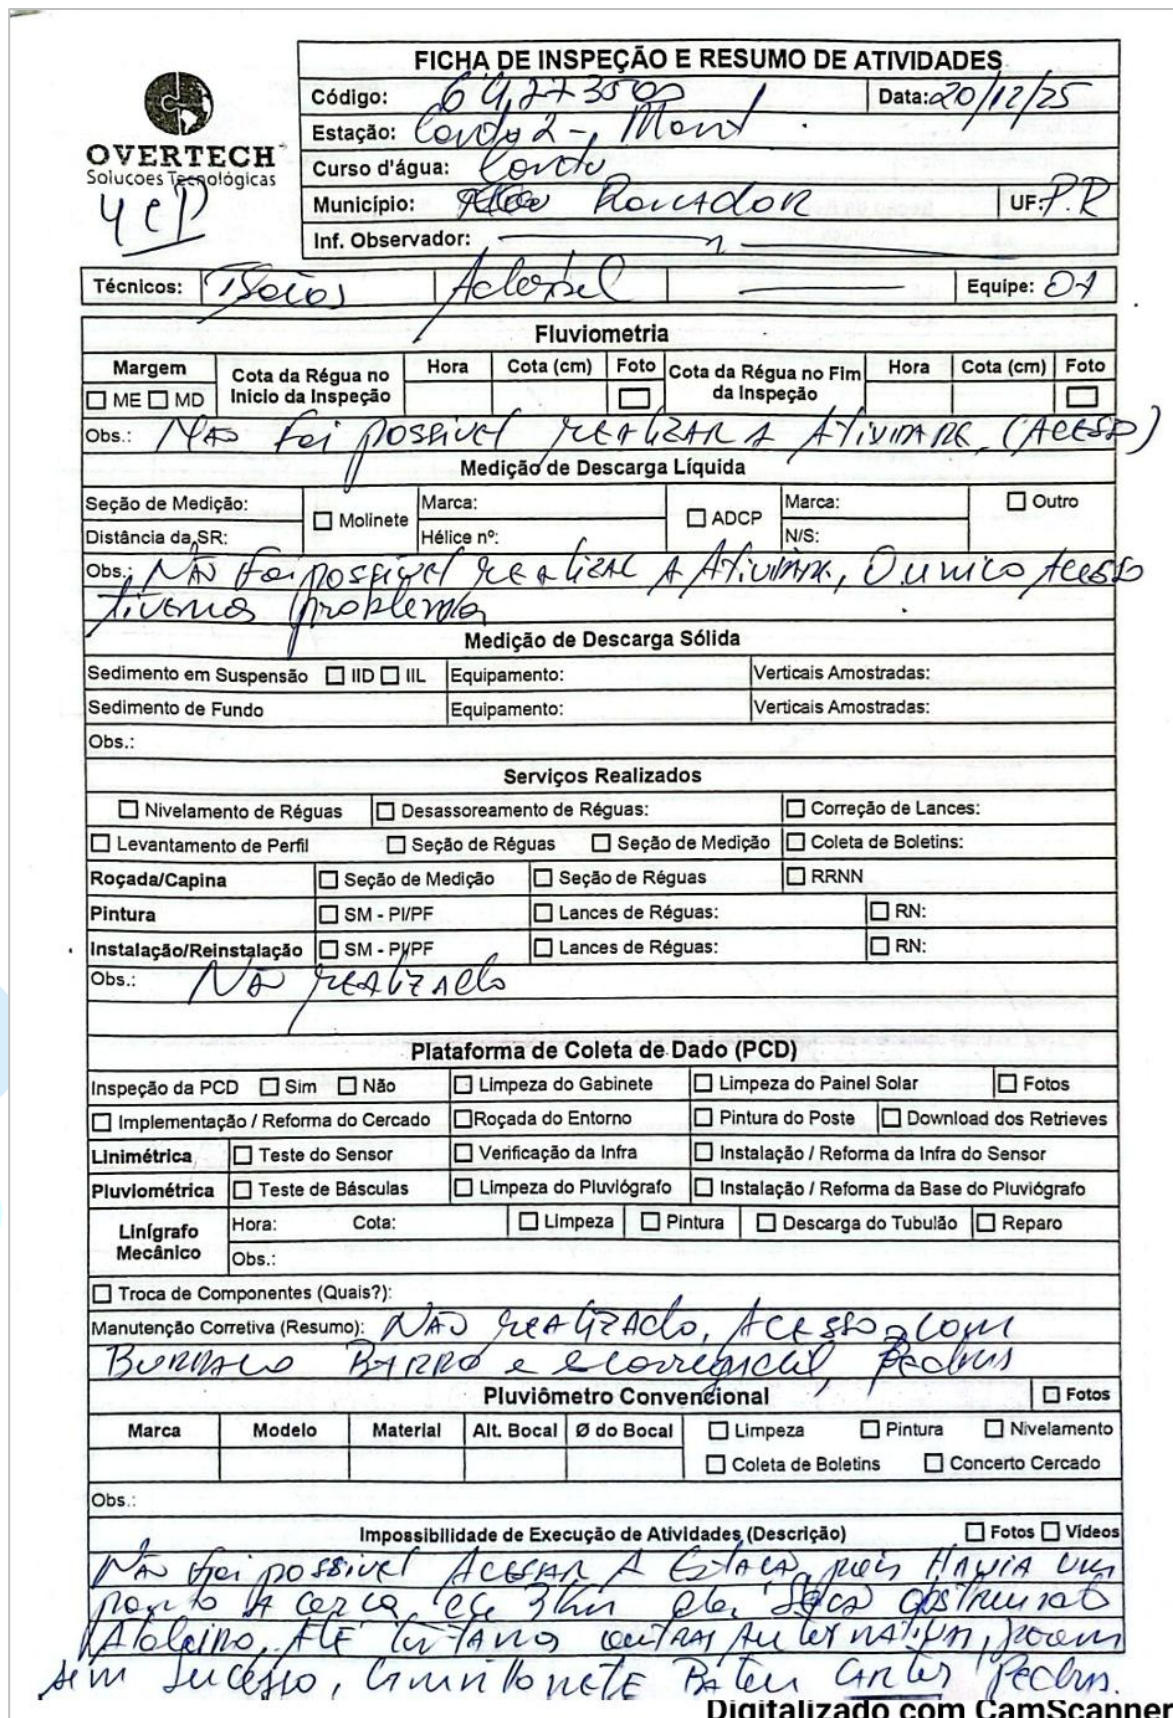 FICHA DE INSPEÇÃO E RESUMO DE ATIVIDADES
Código: Data: 20/12/25
OVERTECH
Soluções Tecnológicas
Estação: 2 -
Curso d'água:
Município: RONCADOR UF: P.R
Inf. Observador:
Técnicos: Equipe: 01
Fluviometria
Margem Cota da Régua no Inicio da Inspeção Hora Cota (cm) Foto Cota da Régua no Fim da Inspeção Hora Cota (cm) Foto
ME MD
Obs.: NÃO foi possível REALIZAR A ATIVIDADE. (ACESSO)
Medição de Descarga Líquida
Seção de Medição: Molinete Marca: ADCP Marca: Outro
Distância da SR: Hélice nº: N/S:
Obs.: NÃO foi possível REALIZAR A ATIVIDADE, O unico Acesso
tivemos problema
Medição de Descarga Sólida
Sedimento em Suspensão IID IIL Equipamento: Verticais Amostradas:
Sedimento de Fundo Equipamento: Verticais Amostradas:
Obs.:
Serviços Realizados
Nivelamento de Réguas Desassoreamento de Réguas: Correção de Lances:
Levantamento de Perfil Seção de Réguas Seção de Medição Coleta de Boletins:
Roçada/Capina Seção de Medição Seção de Réguas RRNN
Pintura SM - PI/PF Lances de Réguas: RN:
Instalação/Reinstalação SM - PI/PF Lances de Réguas: RN:
Obs.: NÃO REALIZAdo
Plataforma de Coleta de Dado (PCD)
Inspeção da PCD Sim Não Limpeza do Gabinete Limpeza do Painel Solar Fotos
Implementação / Reforma do Cercado Roçada do Entorno Pintura do Poste Download dos Retrieves
Linimétrica Teste do Sensor Verificação da Infra Instalação / Reforma da Infra do Sensor
Pluviométrica Teste de Básculas Limpeza do Pluviógrafo Instalação / Reforma da Base do Pluviógrafo
Linígrafo Mecânico Hora: Cota: Limpeza Pintura Descarga do Tubulão Reparo
Obs.:
Troca de Componentes (Quais?):
Manutenção Corretiva (Resumo): NÃO REALIZAdo, ACESSO com
BURRACO BARRO e Pedras
Pluviômetro Convencional Fotos
Marca Modelo Material Alt. Bocal Ø do Bocal Limpeza Pintura Nivelamento
Coleta de Boletins Concerto Cercado
Obs.:
Impossibilidade de Execução de Atividades (Descrição) Fotos Vídeos
NÃO foi possivel ACESSAR A pois HAVIA um
ponto A cerca de 3Km da
Atoleiro, outras
sem sucesso, Bateu Pedras.
Digitalizado com CamScanner